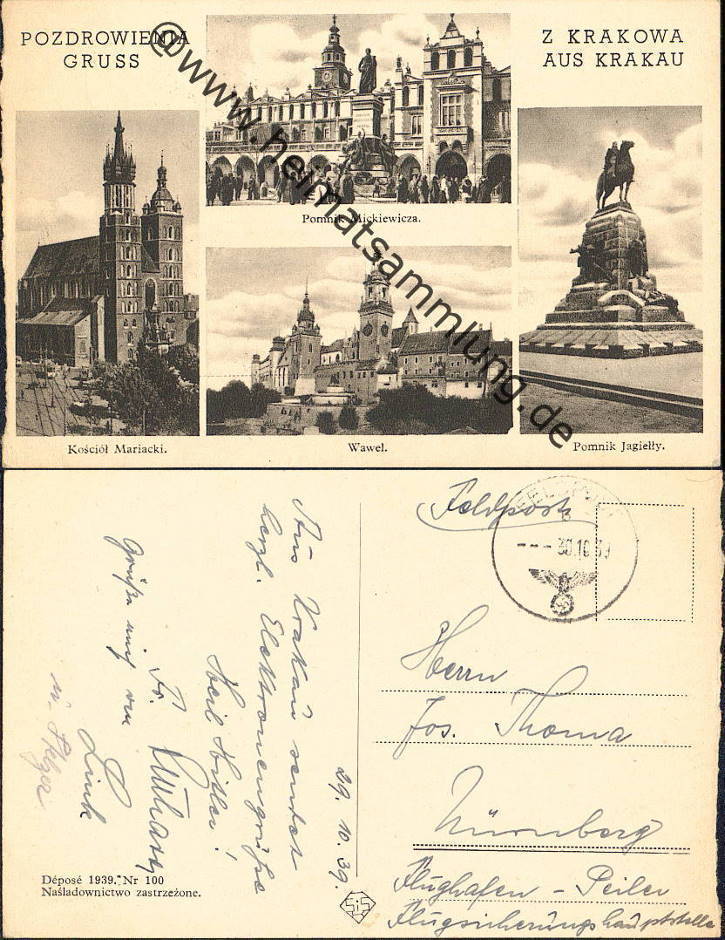 POZDROWIENIA
GRUSS
Z KRAKOWA
AUS KRAKAU
@www.heimatsammlung.de
Pomnik Mickiewicza.
Kościół Mariacki.
Wawel.
Pomnik Jagiełły.
Feldpost
30.10.39
29. 10. 39.
Aus Krakau sendet
herzl. Elektronengrüße
Heil Hitler!
Fr.
Grüße auch von
Link
Herrn
Jos. Thoma
Nürnberg
Flughafen - Peiler
Flugsicherungshauptstelle
Déposé 1939. Nr 100
Naśladownictwo zastrzeżone.
SiS